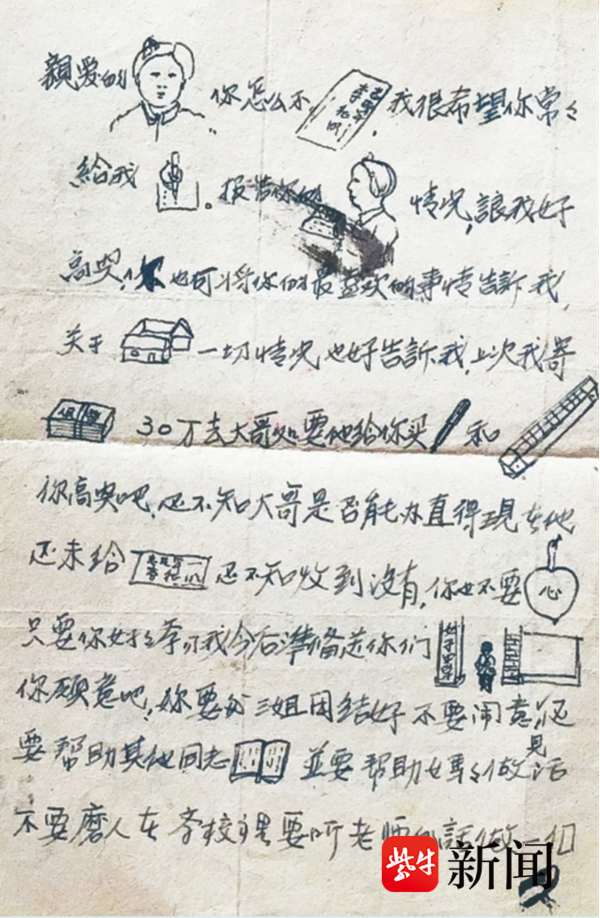 親爱的
你怎么不
,我很希望你常々
給我
。报告你的
情况,讓我好
高兴,你也可将你们最喜欢的事情告訴我,
关于
一切情况也好告訴我,上次我寄
30万去大哥处要他给你买
和
你高兴吧,还不知大哥是否能办直得現在他
还未给
还不知收到没有,你也不要
心
只要你好好学习我今后準备送你们
你願意吧,你要的三姐团结好不要闹意见还
要帮助其他同志
並要帮助媽媽做活
不要磨人在学校里要听老师的話做一切
紫牛新闻